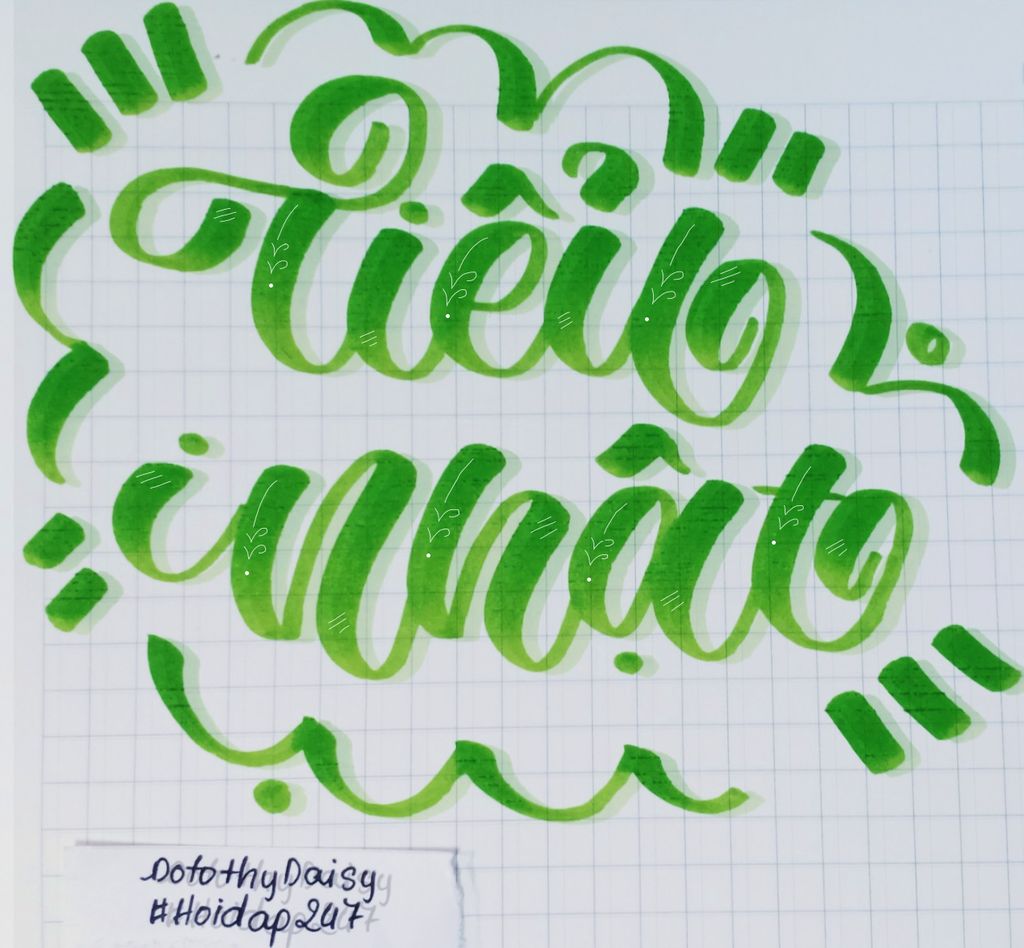 Tiểu
Nhật
DotothyDaisy
#Hoidap247